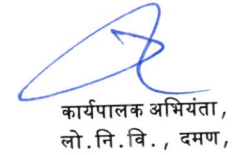 कार्यपालक अभियंता,
लो.नि.वि., दमण,